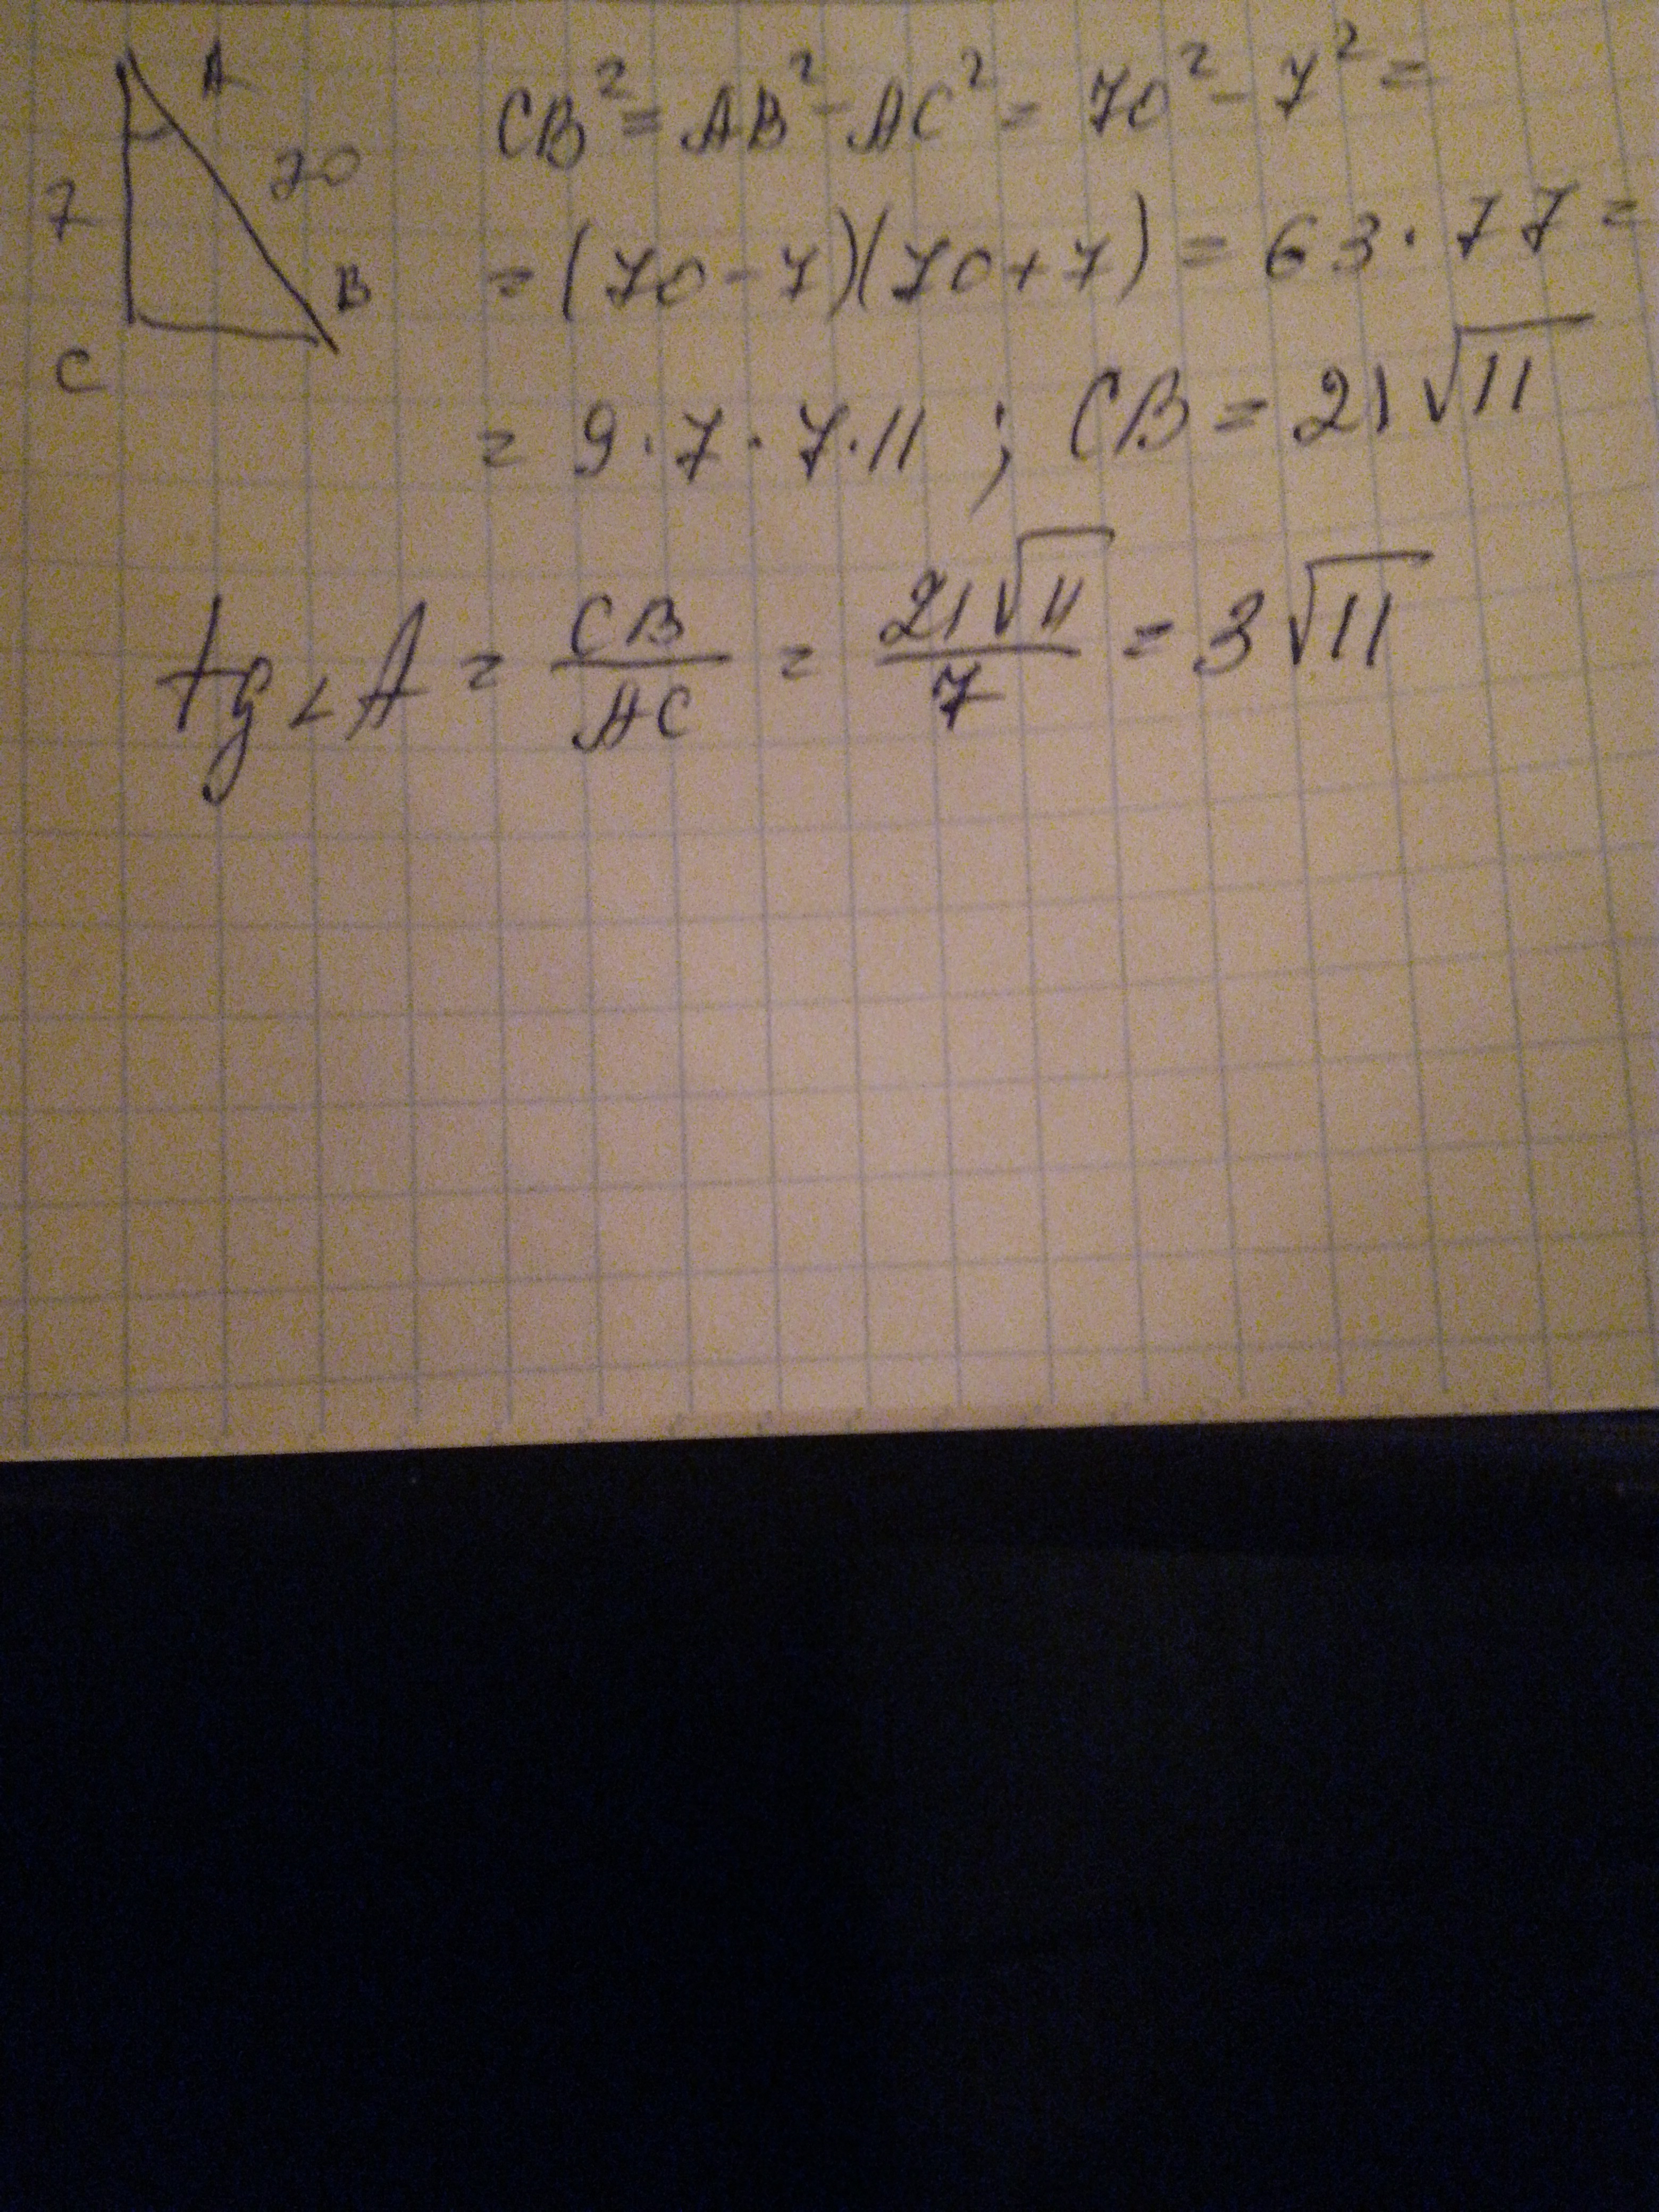 A
7
70
B
C
CB² = AB² - AC² = 70² - 7² =
= (70 - 7)(70 + 7) = 63 · 77 =
= 9 · 7 · 7 · 11 ; CB = 21√11
tg∠A = CB/AC = 21√11/7 = 3√11